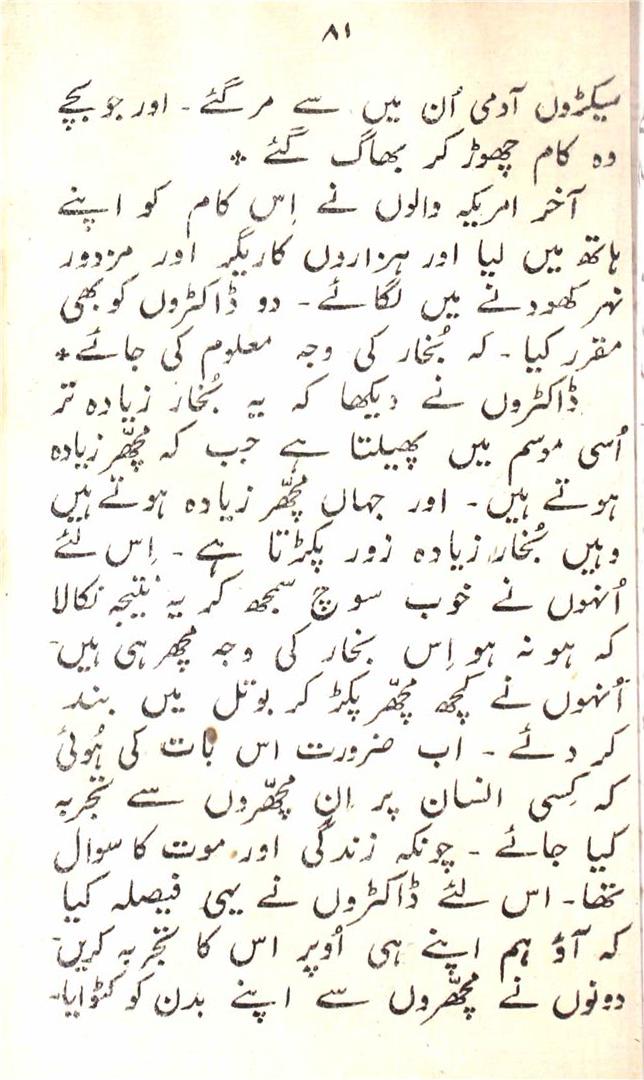 ۸۱
سیکڑوں آدمی اُن میں سے مر گئے ۔ اور جو بچے
وہ کام چھوڑ کر بھاگ گئے *
آخر امریکہ والوں نے اِس کام کو اپنے
ہاتھ میں لیا اور ہزاروں کاریگر اور مزدور
نہر کھودنے میں لگائے ۔ دو ڈاکٹروں کو بھی
مقرر کیا ۔ کہ بُخار کی وجہ معلوم کی جائے *
ڈاکٹروں نے دیکھا کہ یہ بُخار زیادہ تر
اُسی موسم میں پھیلتا ہے جب کہ مچھّر زیادہ
ہوتے ہیں ۔ اور جہاں مچھّر زیادہ ہوتے ہیں
وہیں بُخار زیادہ زور پکڑتا ہے ۔ اِس لئے
اُنہوں نے خوب سوچ سمجھ کر یہ نتیجہ نکالا
کہ ہو نہ ہو اِس بخار کی وجہ مچھر ہی ہیں ۔
اُنہوں نے کچھ مچھّر پکڑ کر بوتل میں بند
کر دئے ۔ اب ضرورت اس بات کی ہُوئی
کہ کِسی انسان پر اِن مچھّروں سے تجربہ
کیا جائے ۔ چونکہ زندگی اور موت کا سوال
تھا ۔ اس لئے ڈاکٹروں نے یہی فیصلہ کیا
کہ آؤ ہم اپنے ہی اُوپر اس کا تجربہ کریں ۔
دونوں نے مچھّروں سے اپنے بدن کو کٹوایا ۔